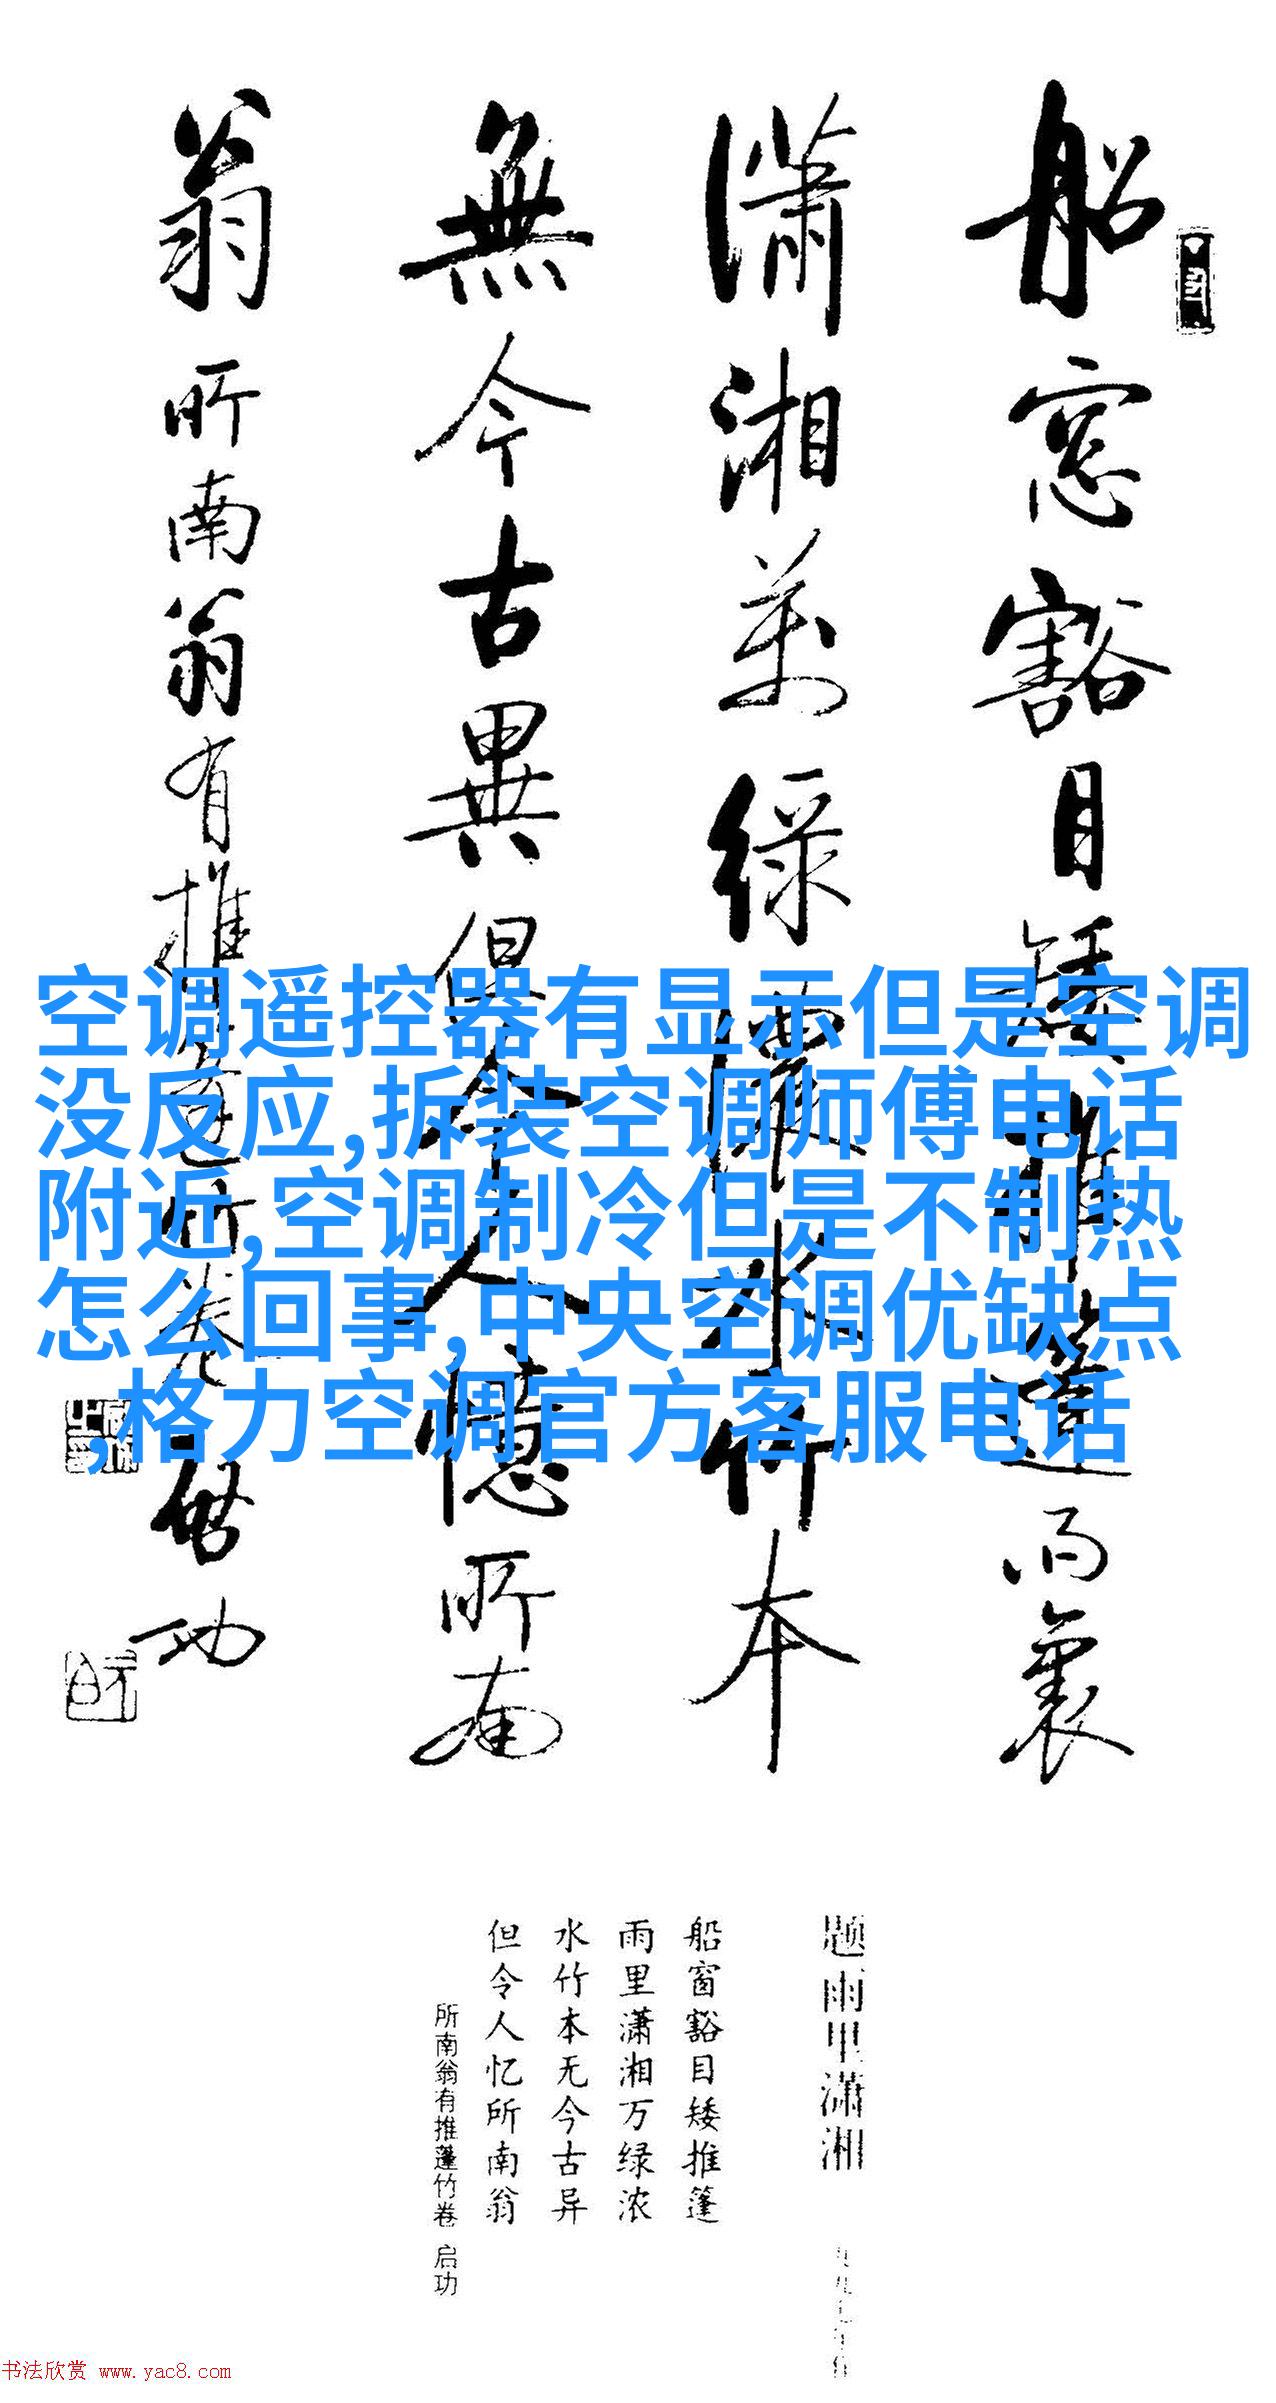 船窓豁目矮推篷雨裏
潇湘万绿濃水竹本
無今古異但令人憶所南
翁 所南翁有推篷竹卷 启功
空调遥控器有显示但是空调
没反应,拆装空调师傅电话
附近,空调制冷但是不制热
怎么回事,中央空调优缺点
,格力空调官方客服电话
题雨里潇湘
船窗豁目矮推篷
雨里潇湘万绿浓
水竹本无今古异
但令人忆所南翁
所南翁有推蓬竹卷 启功
书法欣赏 www.yac8.com